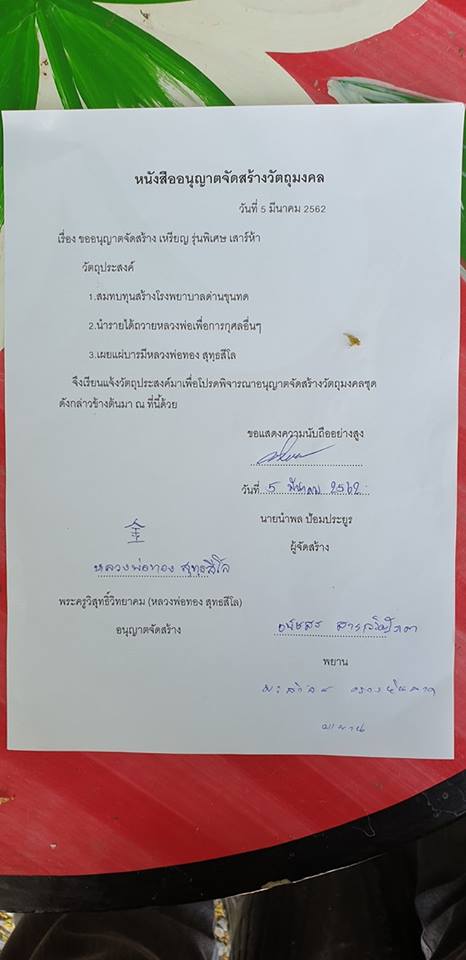 หนังสืออนุญาตจัดสร้างวัตถุมงคล
วันที่ 5 มีนาคม 2562
เรื่อง ขออนุญาตจัดสร้าง เหรียญ รุ่นพิเศษ เสาร์ห้า
วัตถุประสงค์
1.สมทบทุนสร้างโรงพยาบาลด่านขุนทด
2.นำรายได้ถวายหลวงพ่อเพื่อการกุศลอื่นๆ
3.เผยแผ่บารมีหลวงพ่อทอง สุทธสีโล
จึงเรียนแจ้งวัตถุประสงค์มาเพื่อโปรดพิจารณาอนุญาตจัดสร้างวัตถุมงคลชุด
ดังกล่าวข้างต้นมา ณ ที่นี้ด้วย
ขอแสดงความนับถืออย่างสูง
วันที่ 5 มีนาคม 2562
นายนำพล ป้อมประยูร
ผู้จัดสร้าง
หลวงพ่อทอง สุทธสีโล
พระครูวิสุทธิ์วิทยาคม (หลวงพ่อทอง สุทธสีโล)
อนุญาตจัดสร้าง
พยาน
พยาน